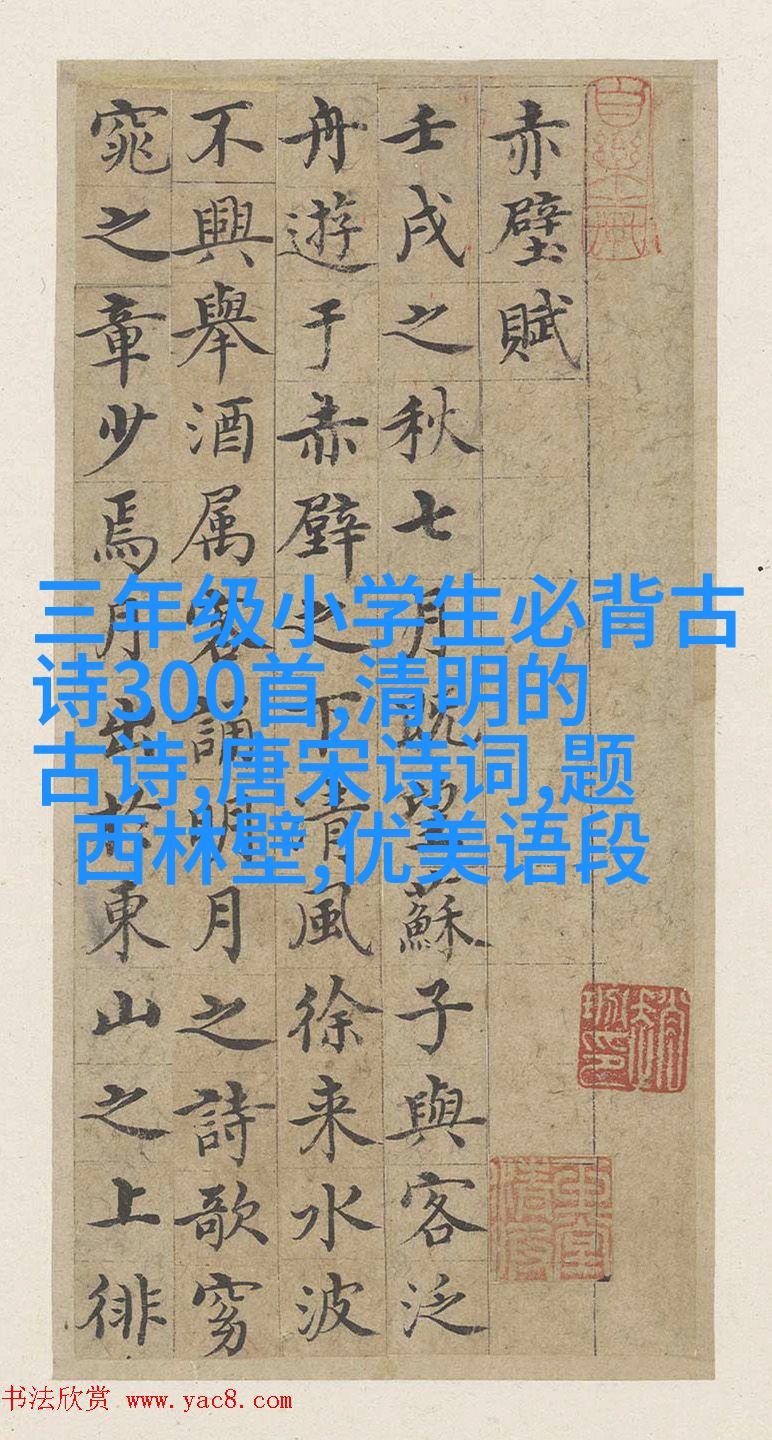 赤壁賦
壬戌之秋七月既望蘇子與客泛
舟遊于赤壁之下清風徐来水波
不興舉酒属客誦明月之詩歌窈
窕之章少焉月出於東山之上徘
三年级小学生必背古
诗300首,清明的
古诗,唐宋诗词,题
西林壁,优美语段
书法欣赏 www.yac8.com